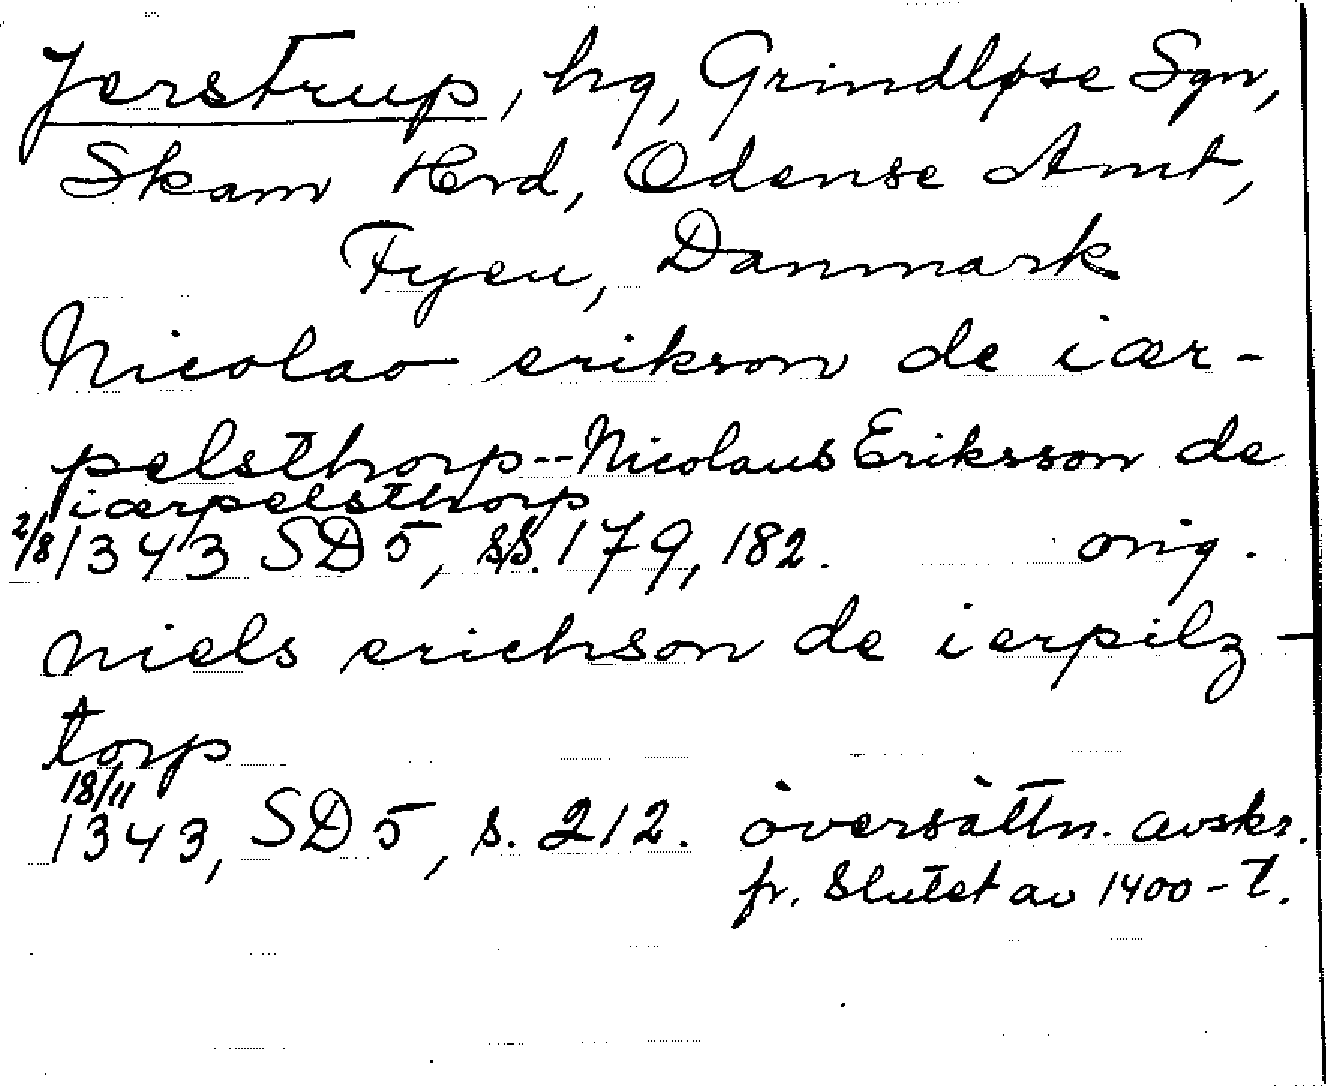 Jerstrup, hg, Grindløse Sgn,
Skam Hrd, Odense Amt,
Fyen, Danmark
Nicolao erikson de iær-
pelsthorp--Nicolaus Eriksson de
iærpelsthorp
2/8 1343 SD 5, ss. 179, 182. orig.
niels erichson de ierpilz-
torp
18/11
1343, SD 5, s. 212. översättn. avskr.
fr. Slutet av 1400-t.